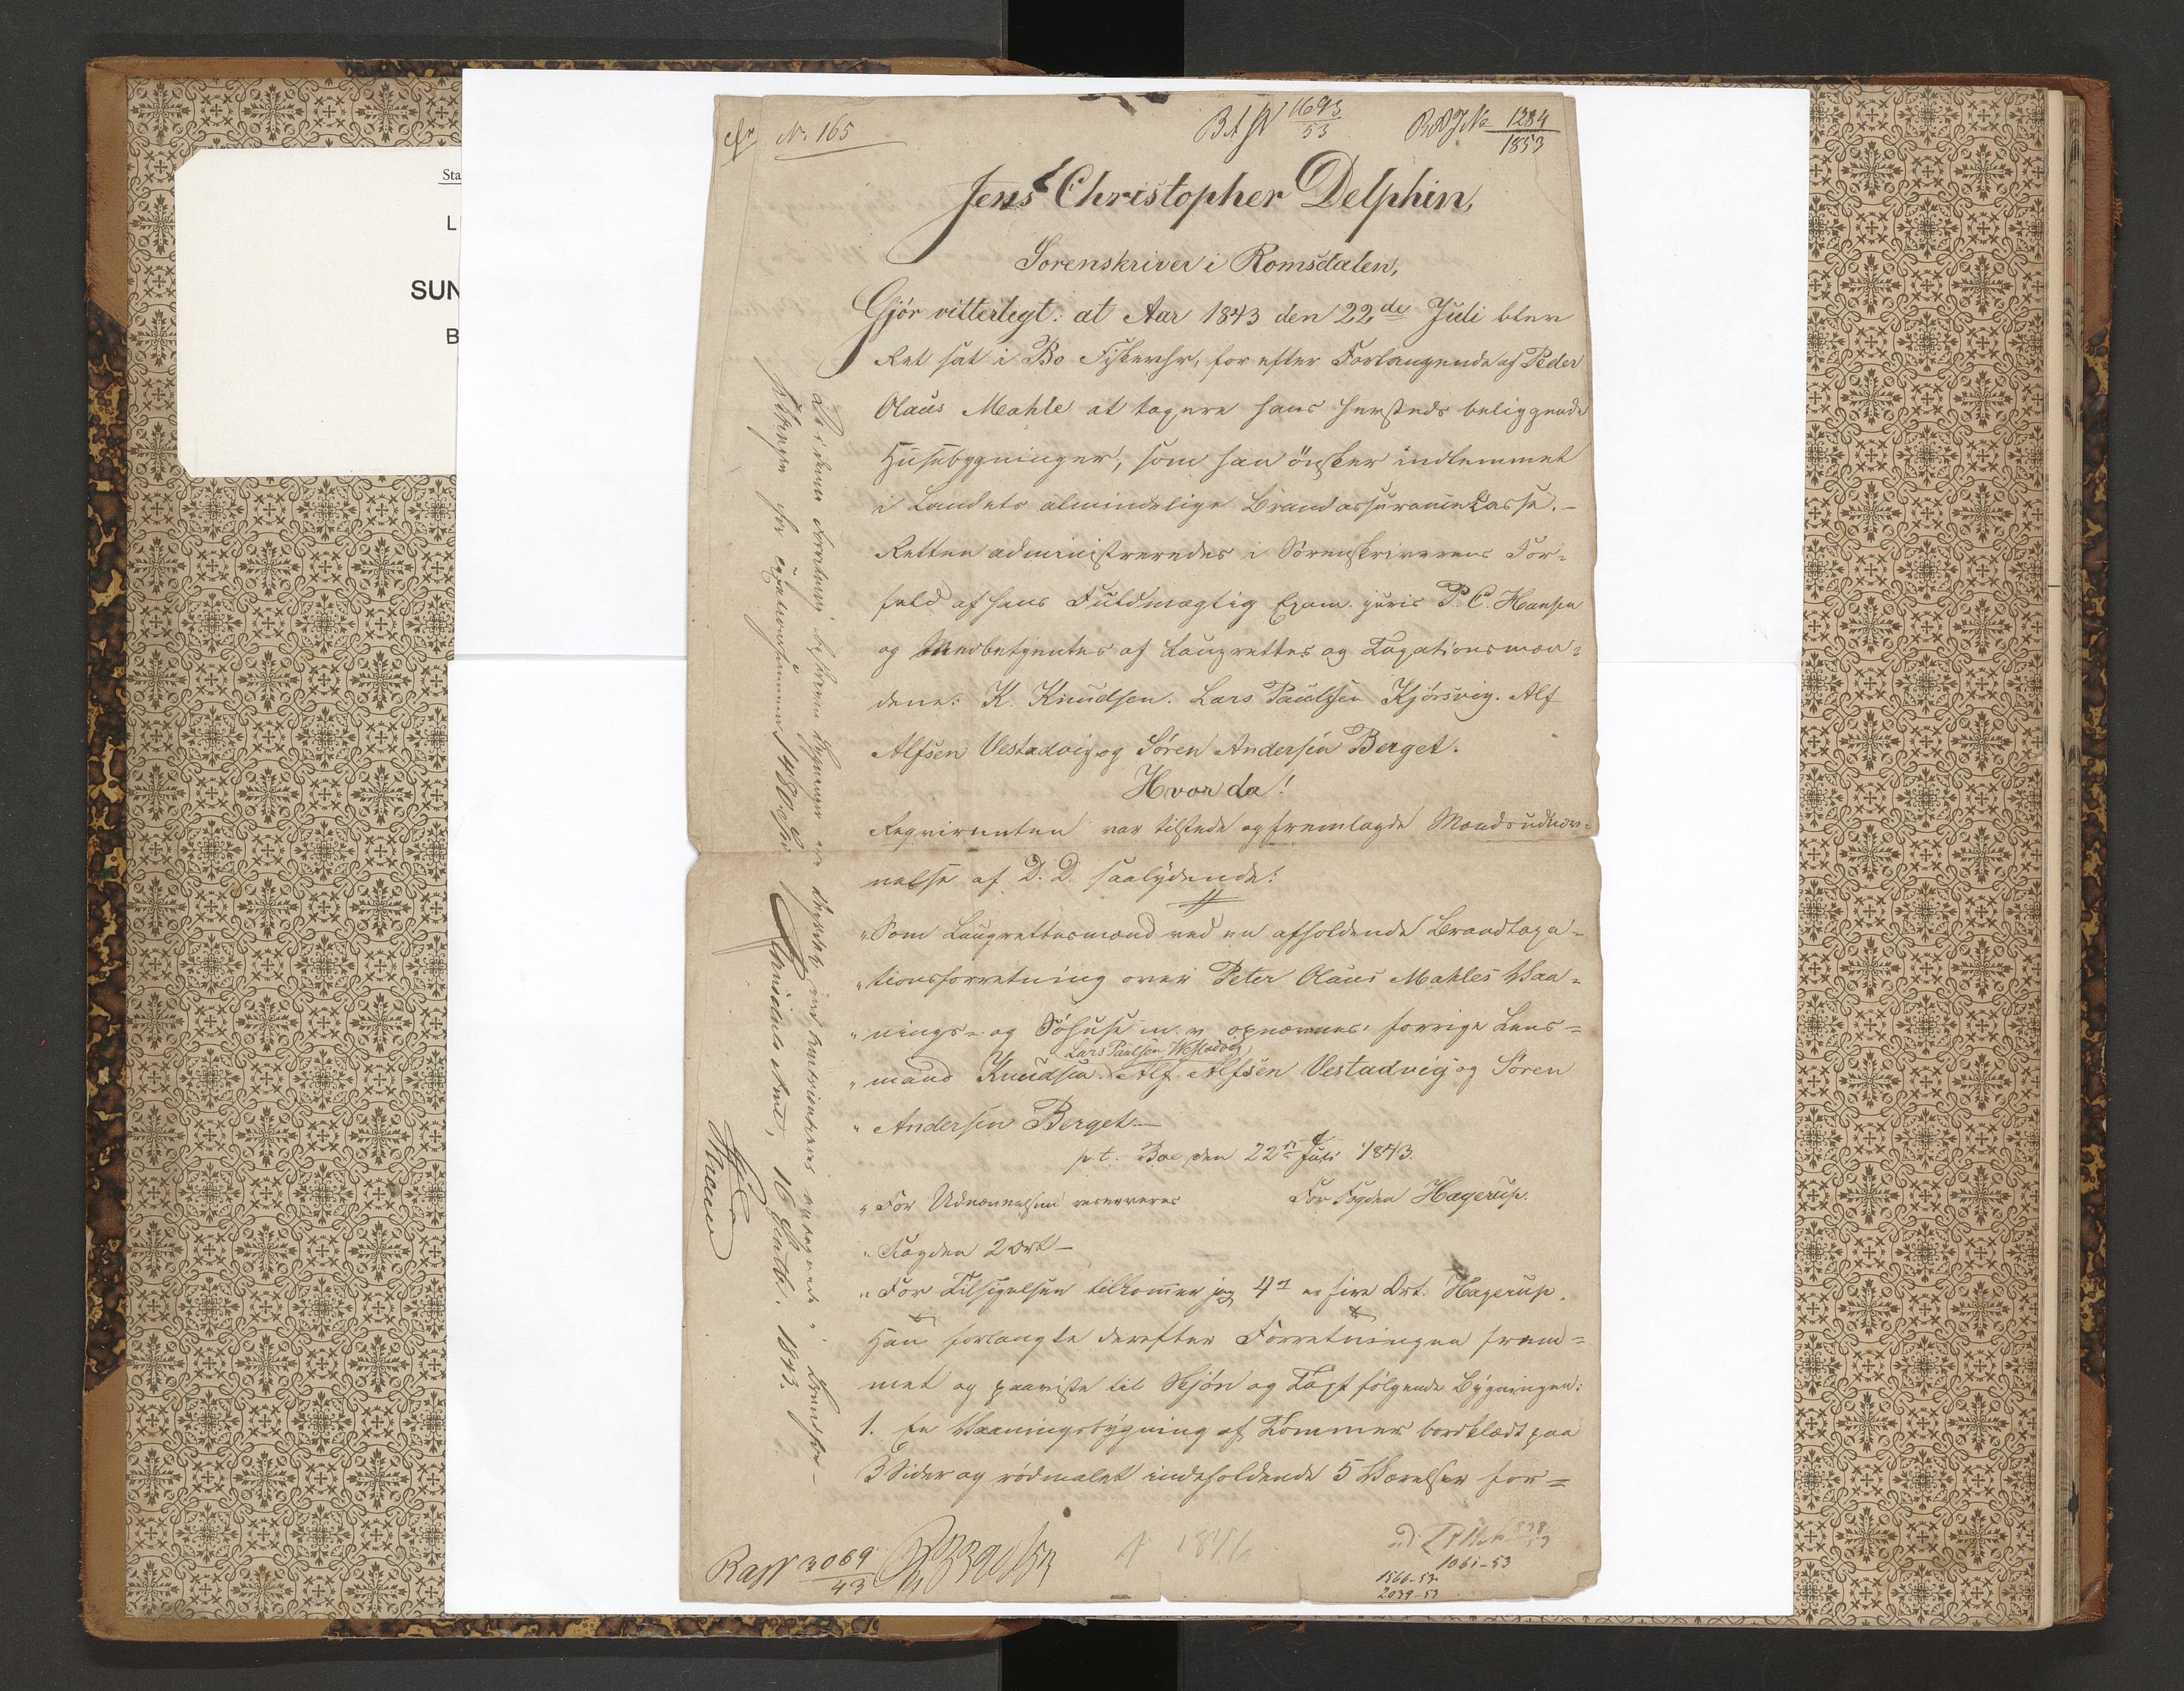 Sta
L
SUN
B
N. 165
1693
53
1284
1853
Jens Christopher Delphin,
Sorenskriver i Romsdalen,
Gjör vitterligt: at Aar 1843 den 22de Juli blev
Ret sat i Bo Fiskevær, for efter Forlangende af Peder
Olaus Mahle at taxere hans hersteds beliggende
Husebygninger, som han önsker indlemmet
i Landets almindelige Brandassurancekasse. –
Retten administreredes i Sörenskriverens For-
fald af hans Fuldmægtig Exam. juris P. C. Hansen
og Medbetjentes af Laugrettes og Taxationsmæn-
dene: K. Knudsen. Lars Paulsen Kjörsvig. Alf
Alfsen Vestadvig og Sören Andersen Berget.
Hvor da!
Reqvirenten var tilstede og fremlagde Mandsudnæv-
nelse af D. D. saalydende:
"Som Laugrettesmænd ved en afholdende Brandtaxa-
"tionsforretning over Peter Olaus Mahles Vaa-
"nings- og Söhuse m. v. opnævnes: forrige Lens-
Lars Paulsen Westadvig
"mand Knudsen. Alf Alfsen Vestadvig og Sören
" Andersen Berget. –
p. t. Boe den 22 Juli 1843.
"For Udnævnelsen reserveres For Fogden Hagerup.
"Fogden 2 Ort –
"For Tilsigelsen tilkommer jeg 4 er fire Ort. Hagerup.
Han forlangte derefter Forretningen frem-
met og paaviste til Skjön og Taxt fölgende Bygninger:
1. En Vaaningsbygning af Tömmer bordklædt paa
3 Sider og rödmalet indeholdende 5 Værelser for-
De i denne Forretning beskrevne Bygninger ere
for Taxationssummen 1480
Romsdals Amt, 16 Septbr. 1843.
3069
43
1846
1061-53
1566-53
2039-53